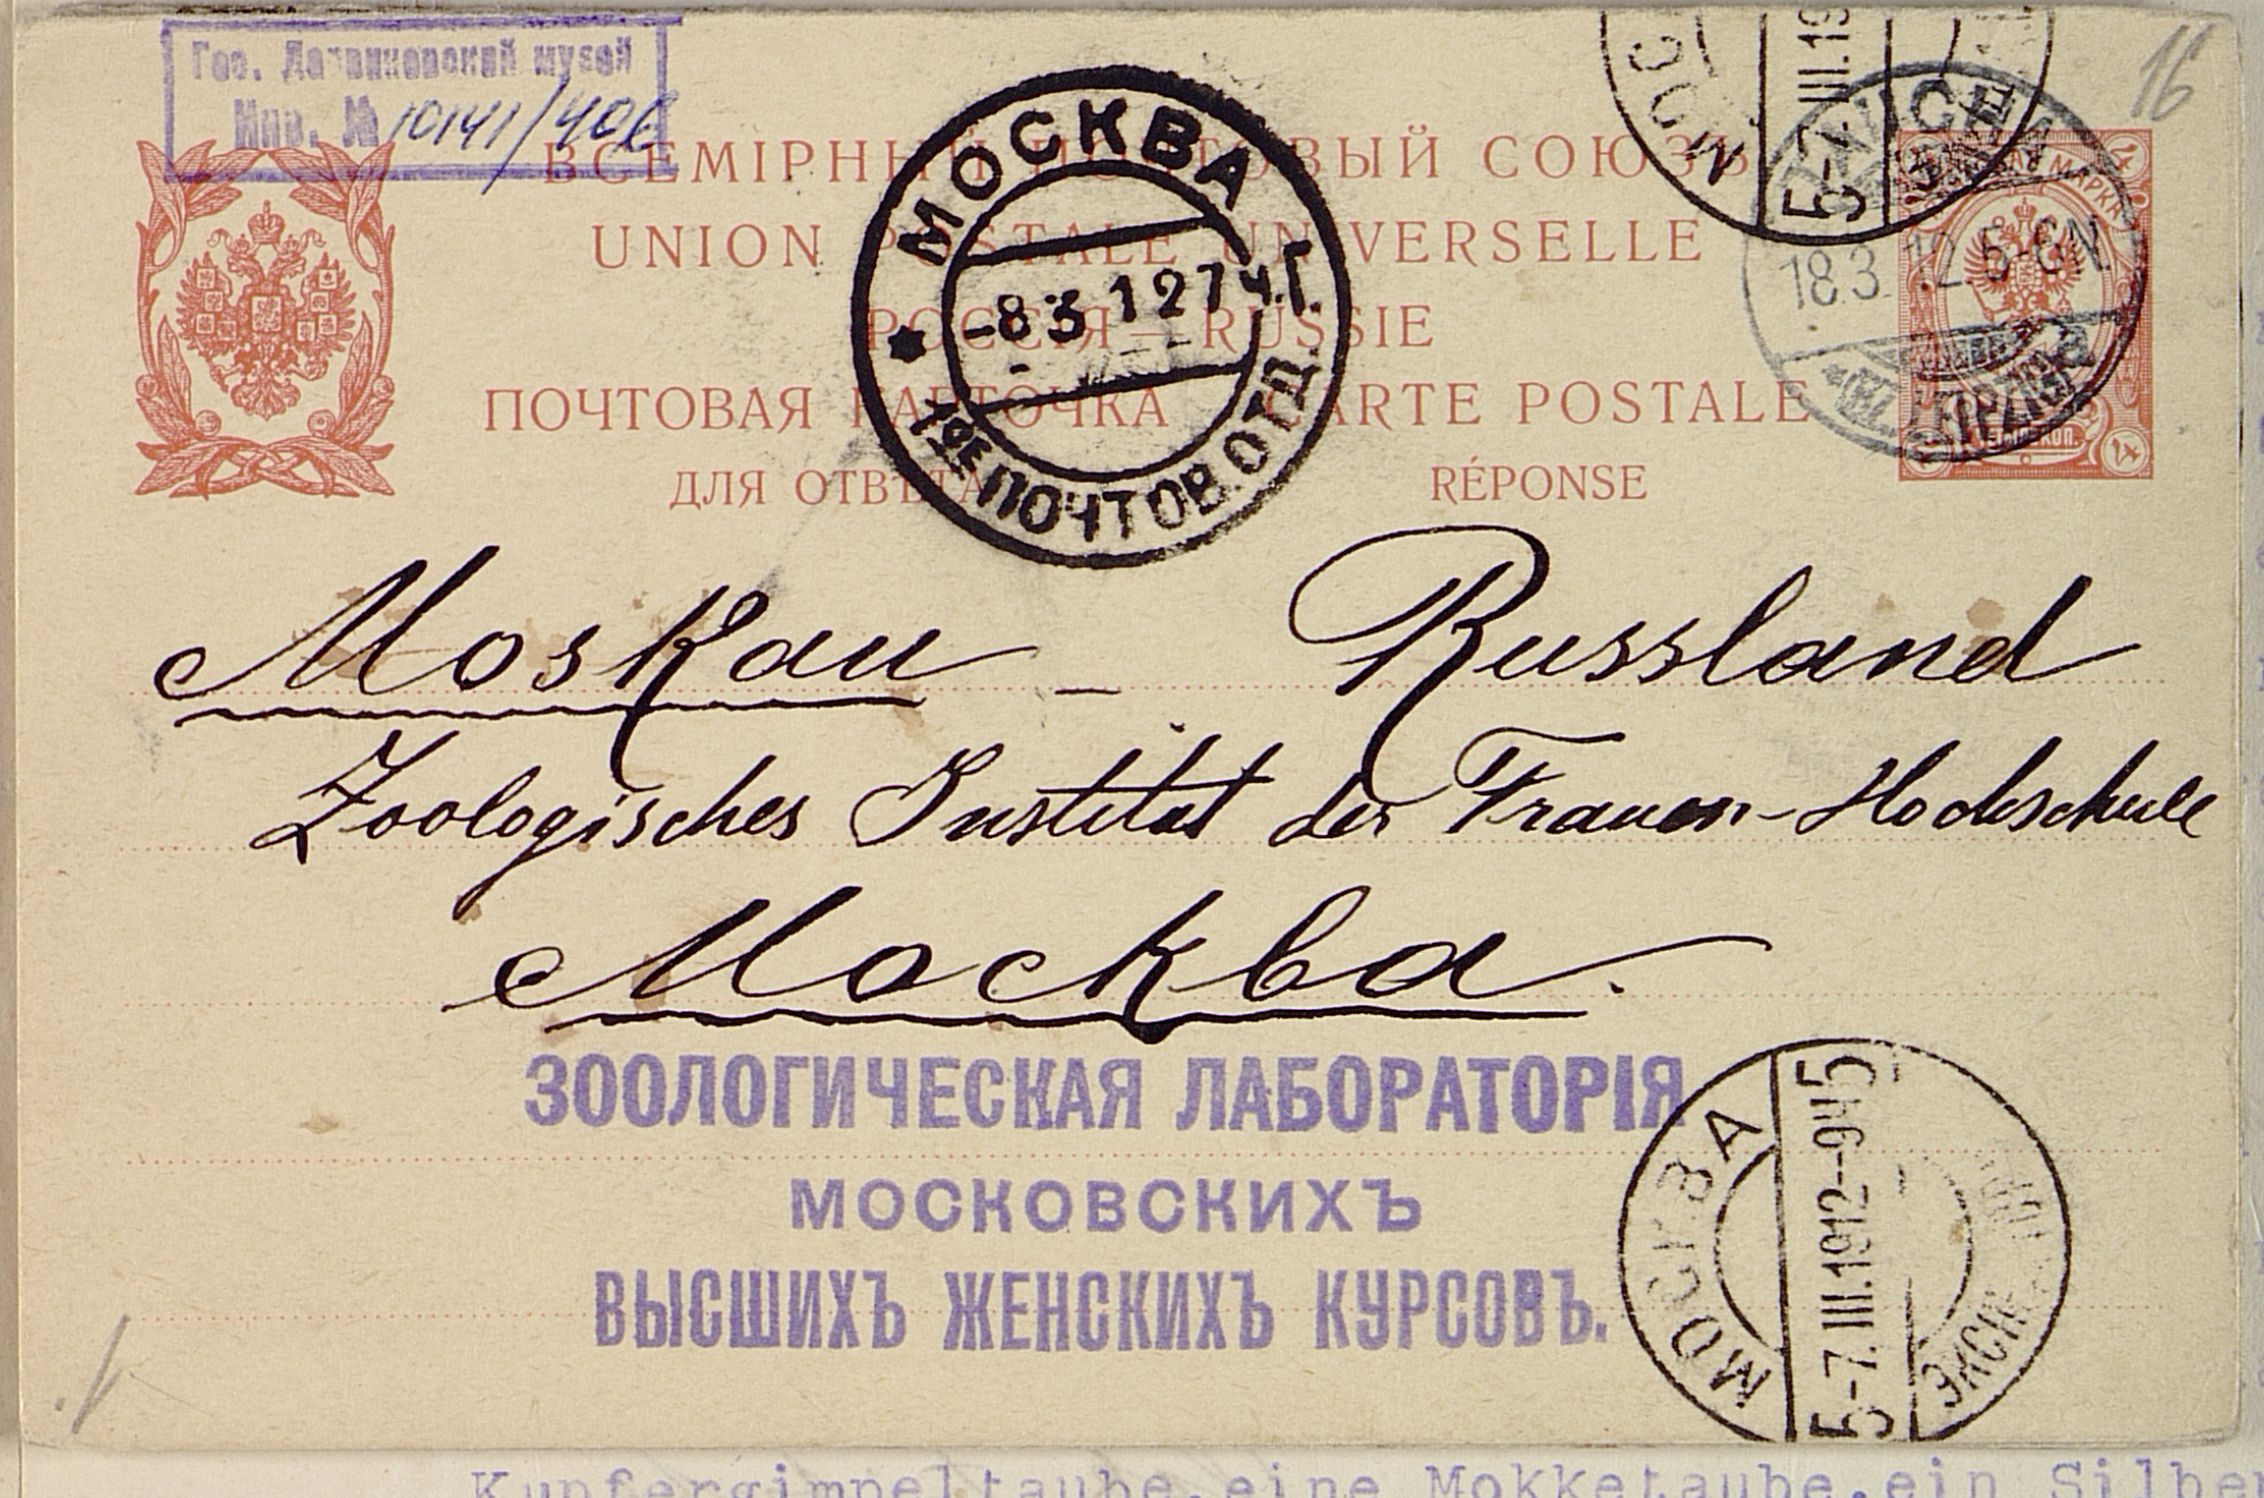 Гос. Дарвиновский музей
Инв. № 10141/406
16
ВСЕМІРНЫЙ ПОЧТОВЫЙ СОЮЗЪ
UNION POSTALE UNIVERSELLE
РОССІЯ — RUSSIE
ПОЧТОВАЯ КАРТОЧКА CARTE POSTALE
ДЛЯ ОТВѢТА RÉPONSE
МОСКВА
-8 3 12 7 Ч.Г.
1ОЕ ПОЧТОВ. ОТД.
МОС
5-7.III.19
18.3.12.5-6N
LEIPZIG
МАРКА
Moskau - Russland
Zoologisches Institut der Frauen-Hochschule
Москва.
ЗООЛОГИЧЕСКАЯ ЛАБОРАТОРІЯ
МОСКОВСКИХЪ
ВЫСШИХЪ ЖЕНСКИХЪ КУРСОВЪ.
МОСКВА
5-7.III.1912--9Ч5
ЭКСП
Kupfergimpeltaube, eine Mokketaube, ein Silber